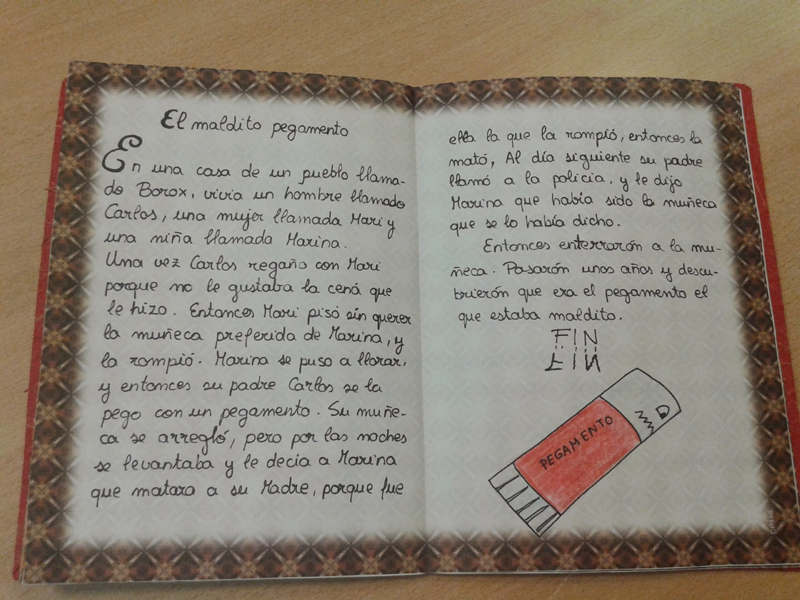 El maldito pegamento
En una casa de un pueblo llama-
do Borox, vivia un hombre llamado
Carlos, una mujer llamada Mari y
una niña llamada Marina.
Una vez Carlos regaño con Mari
porque no le gustaba la cená que
le hizo. Entonces Mari pisó sin querer
la muñeca preferida de Marina, y
la rompió. Marina se puso a llorar,
y entonces su padre Carlos se la
pego con un pegamento. Su muñe-
ca se arregló, pero por las noches
se levantaba y le decia a Marina
que matara a su Madre, porque fue
ella la que la rompió, entonces la
mató, Al día siguiente su padre
llamó a la policia, y le dijo
Marina que había sido la muñeca
que se lo había dicho.
Entonces enterrarón a la mu-
ñeca. Pasarón unos años y descu-
brierón que era el pegamento el
que estaba maldito.
FIN
FIN
PEGAMENTO